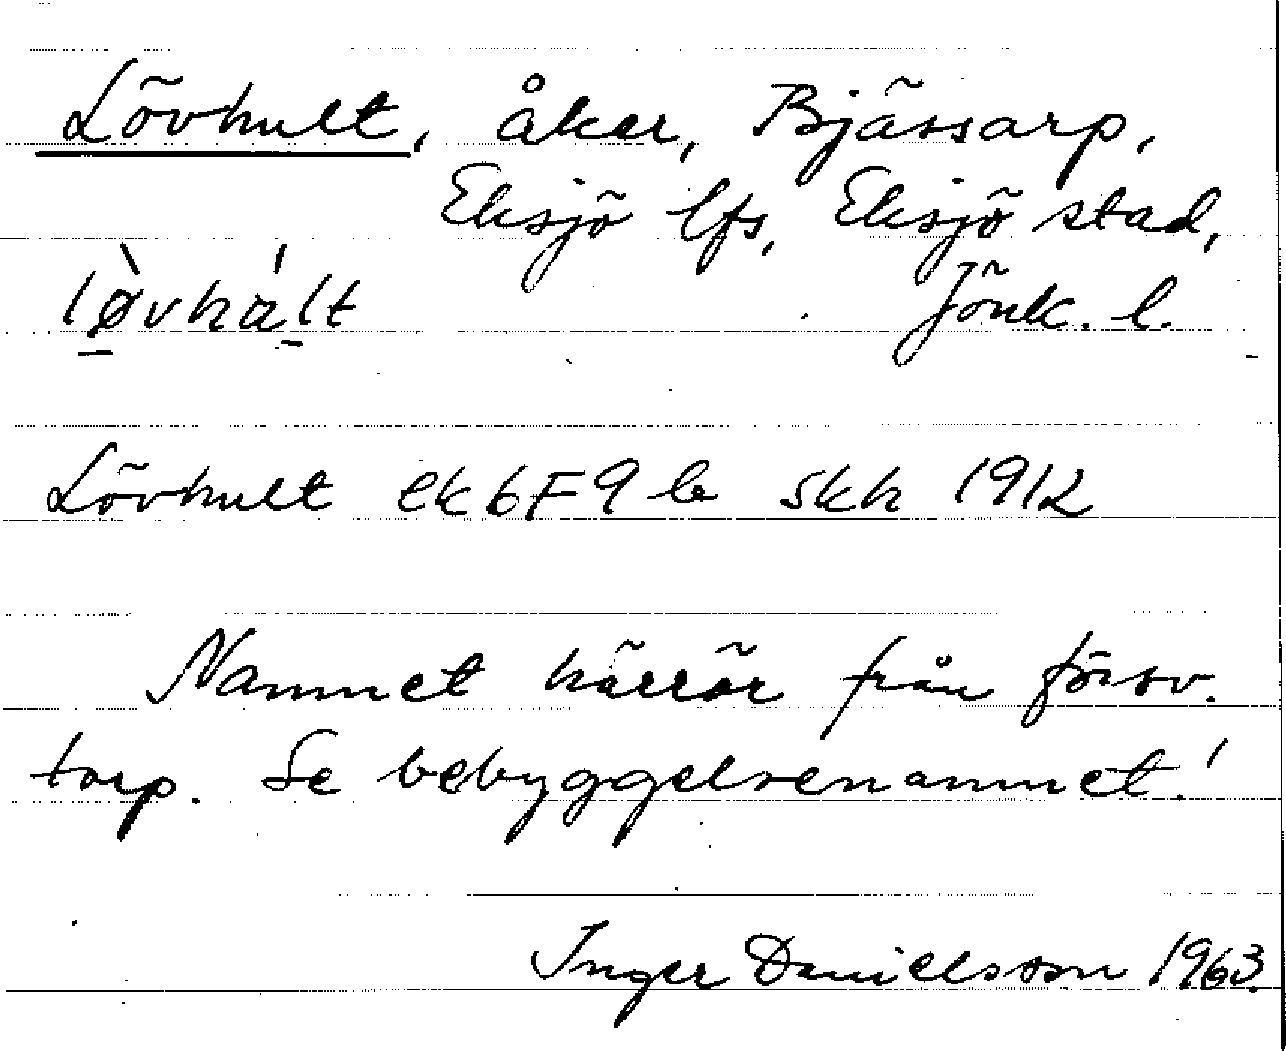 Lövhult, åker, Bjässarp,
Eksjö lfs, Eksjö stad,
lø̀vhált
Jönk. l.
Lövhult ek 6F9b skh 1912
Namnet härrör från försv.
torp. Se bebyggelsenamnet!
Inger Danielsson 1963.